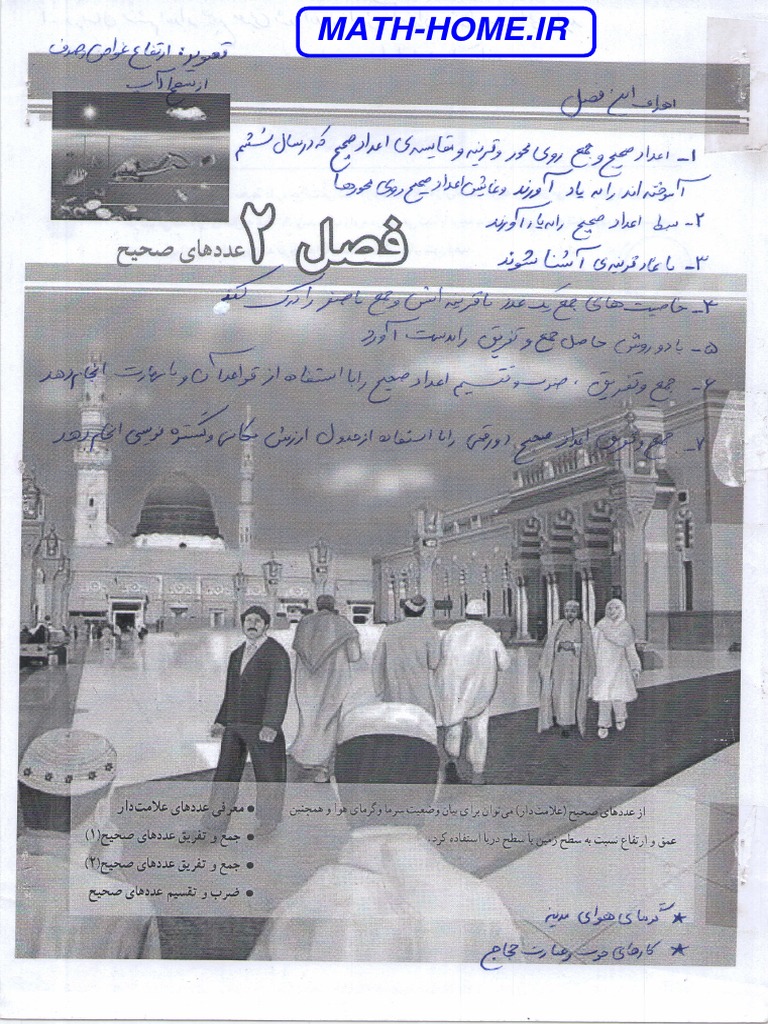 MATH-HOME.IR
تصویر: ارتفاع غواص و صدف
از سطح آب
اهداف این فصل
۱- اعداد صحیح و جمع روی محور و قرینه و مقایسه‌ی اعداد صحیح که در سال ششم
آموخته اند را به یاد آورند و نمایش اعداد صحیح روی محورها
۲- بسط اعداد صحیح را به یاد آورند
فصل ۲ عددهای صحیح
۳- با نماد قرینه‌ی آشنا شوند
۴- خاصیت های جمع یک عدد با قرینه اش و جمع با صفر را درک کند
۵- با دو روش حاصل جمع و تفریق را بدست آورد
۶- جمع و تفریق ، ضرب و تقسیم اعداد صحیح را با استفاده از قواعد آن و با مهارت انجام دهد
۷- جمع و تفریق اعداد صحیح رقمی را با استفاده از جدول ارزش مکانی و گسترده نویسی انجام دهد
از عددهای صحیح (علامت‌دار) می‌توان برای بیان وضعیت سرما و گرمای هوا و همچنین
عمق و ارتفاع نسبت به سطح زمین یا سطح دریا استفاده کرد.
● معرفی عددهای علامت‌دار
● جمع و تفریق عددهای صحیح(۱)
● جمع و تفریق عددهای صحیح(۲)
● ضرب و تقسیم عددهای صحیح
★ گرمای هوای مدینه
★ کارهای خوب و عبارت حجاج